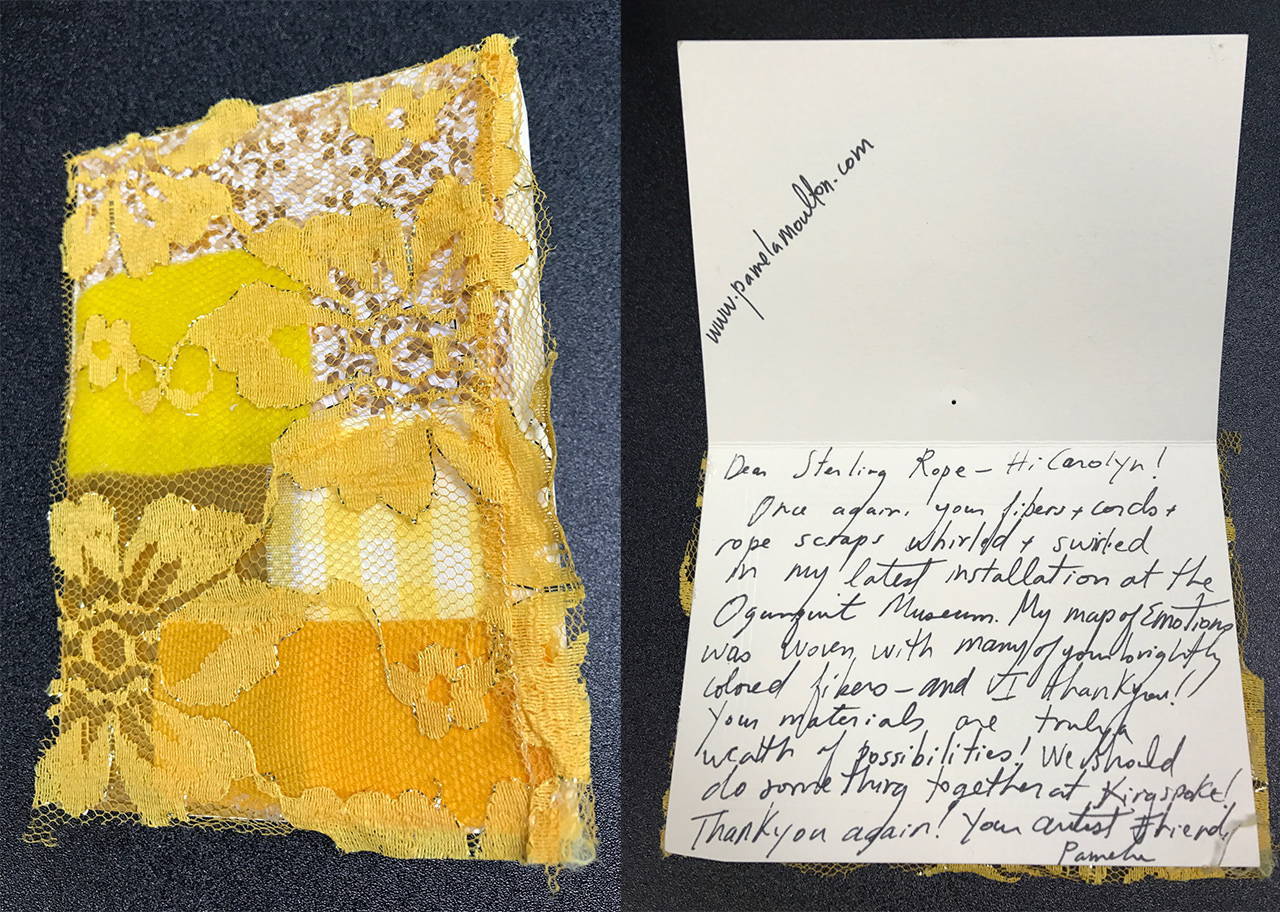 www.pamelamoulton.com
Dear Sterling Rope - Hi Carolyn!
Once again, your fibers + cords +
rope scraps whirled + swirled
in my latest installation at the
Ogunquit Museum. My map of Emotions
was woven with many of your brightly
colored fibers - and I thank you!
Your materials are truly a
wealth of possibilities! We should
do something together at Kingspoke!
Thank you again! Your artist friend,
Pamela